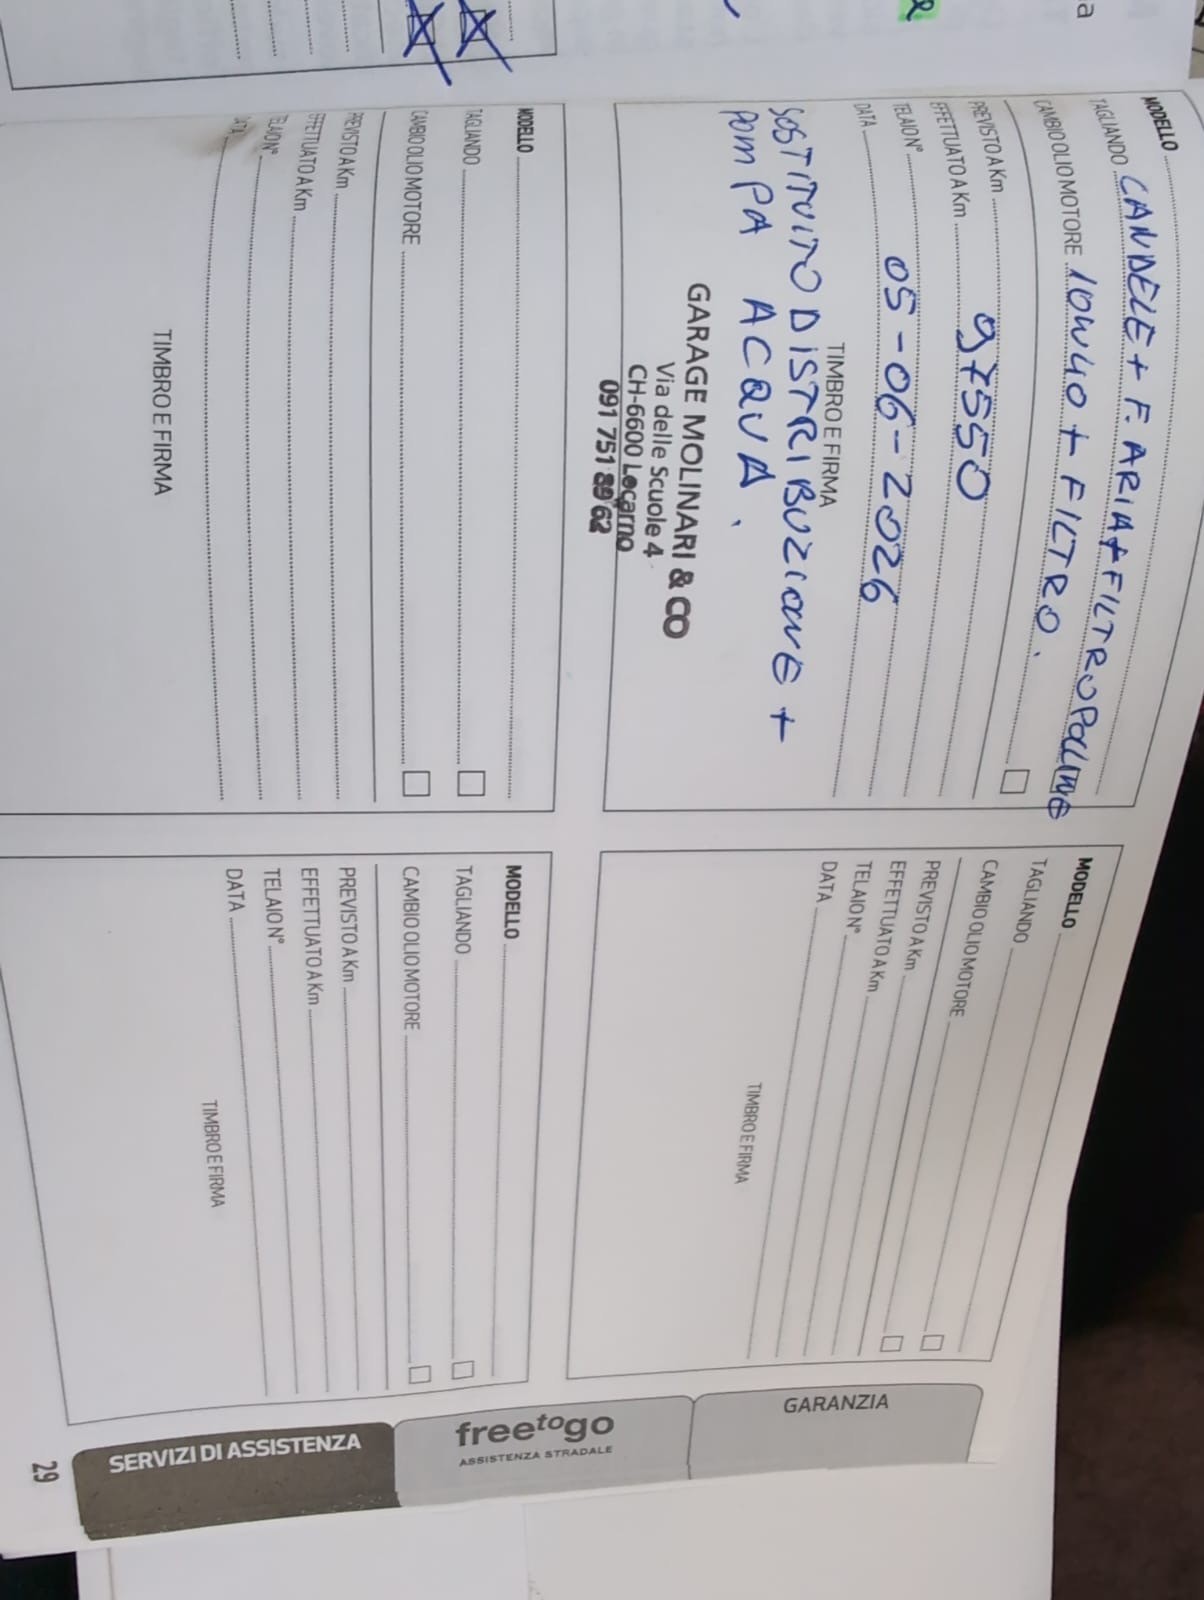 MODELLO
TAGLIANDO CANDELE + F. ARIA + FILTRO POLLINE
CAMBIO OLIO MOTORE 10W40 + FILTRO.
PREVISTO A Km
EFFETTUATO A Km 97550
TELAIO N°
DATA 05-06-2026
TIMBRO E FIRMA
SOSTITUITO DISTRIBUZIONE +
POMPA ACQUA.
GARAGE MOLINARI & CO
Via delle Scuole 4
CH-6600 Locarno
091 751 89 62
MODELLO
TAGLIANDO
CAMBIO OLIO MOTORE
PREVISTO A Km
EFFETTUATO A Km
TELAIO N°
DATA
TIMBRO E FIRMA
MODELLO
TAGLIANDO
CAMBIO OLIO MOTORE
PREVISTO A Km
EFFETTUATO A Km
TELAIO N°
DATA
TIMBRO E FIRMA
MODELLO
TAGLIANDO
CAMBIO OLIO MOTORE
PREVISTO A Km
EFFETTUATO A Km
TELAIO N°
DATA
TIMBRO E FIRMA
GARANZIA
freetogo
ASSISTENZA STRADALE
SERVIZI DI ASSISTENZA
29